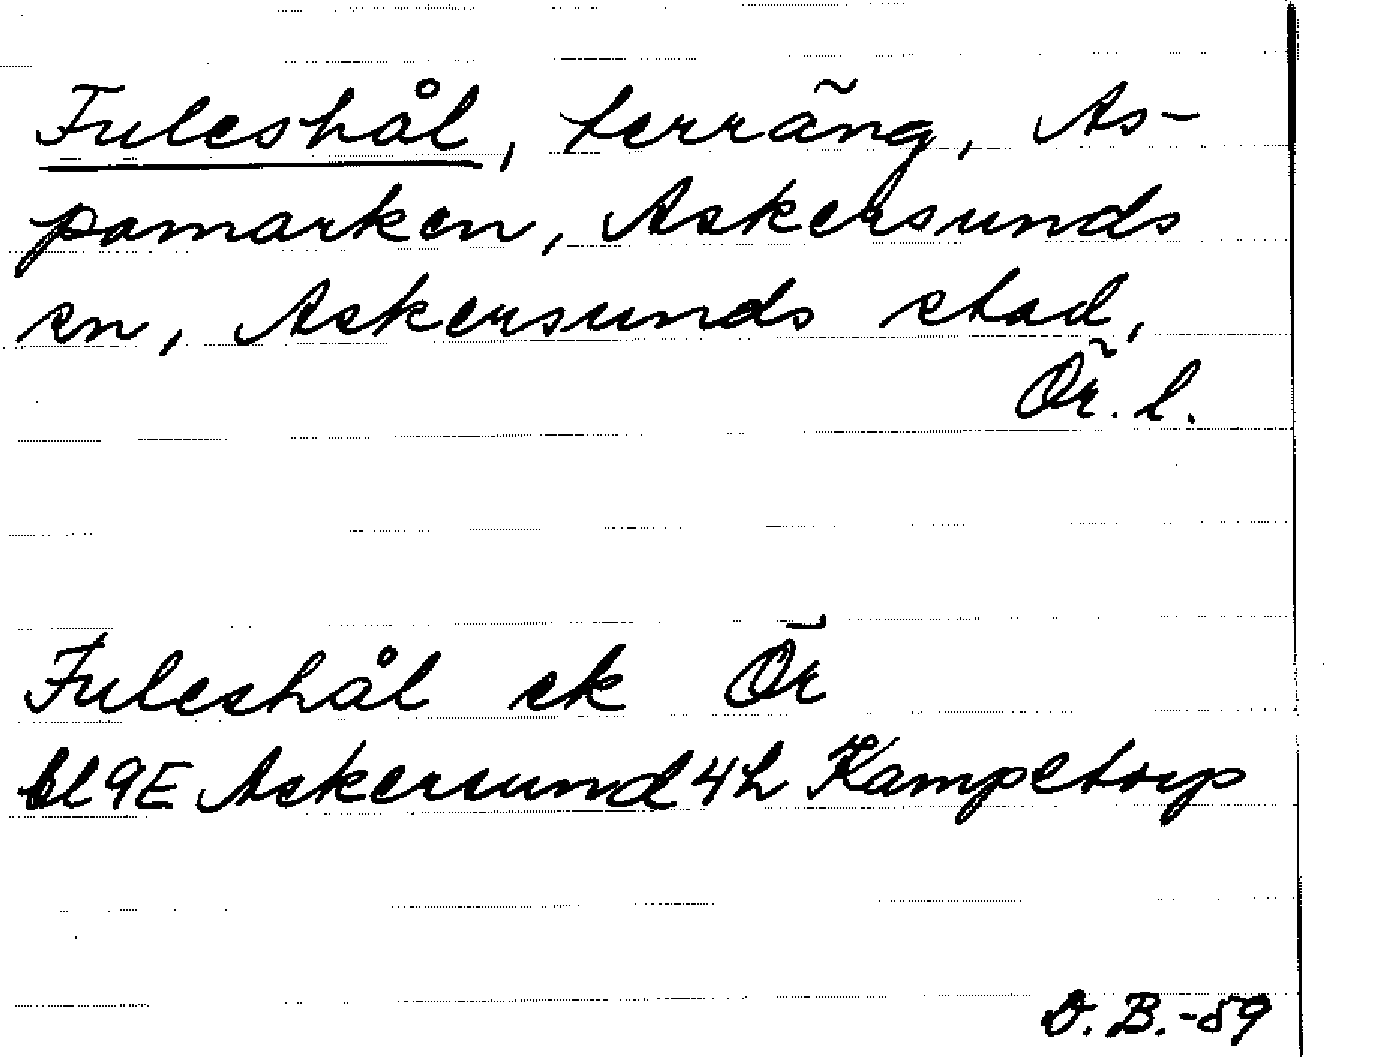 Fuleshål, terräng, As-
pamarken, Askersunds
sn, Askersunds stad,
Ör. l.
Fuleshål ek Ör
bl 9E Askersund 4h Kampetorp
D. B.-59